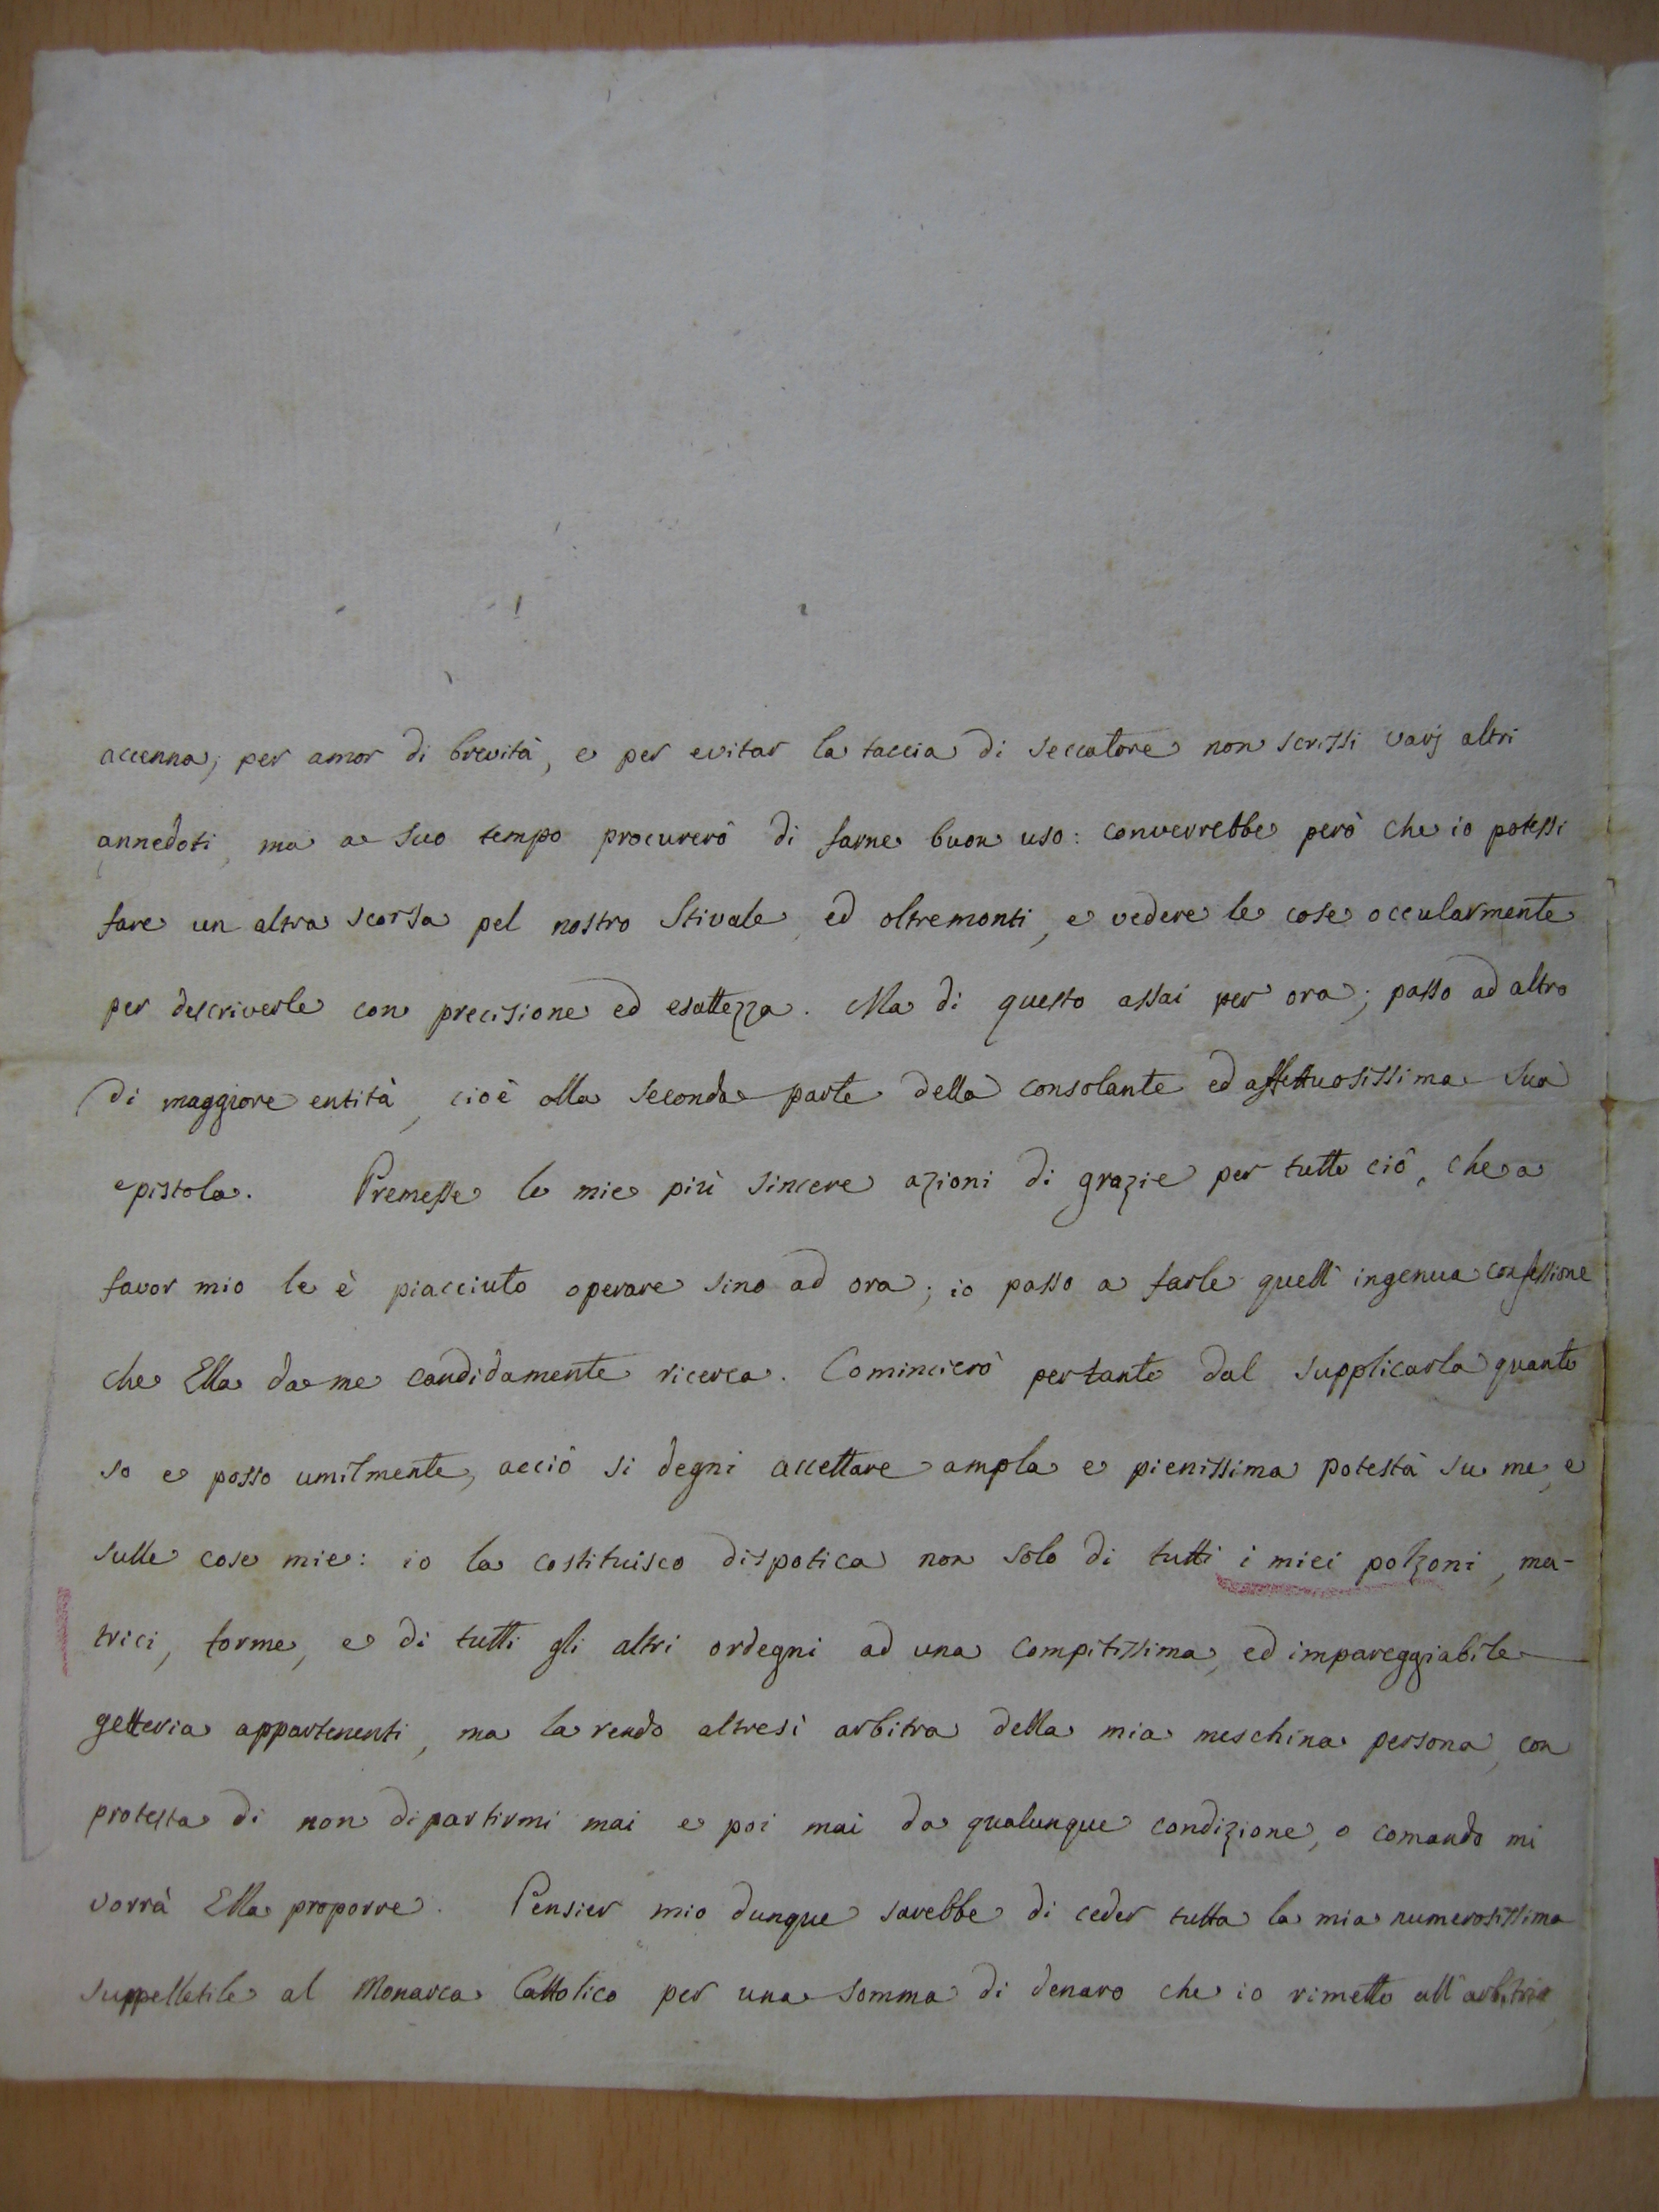 accenna; per amor di brevità, e per evitar la taccia di seccatore non scrissi varj altri
annedoti, ma a suo tempo procurerò di farne buon uso: converrebbe però che io potessi
fare un altra scorsa pel nostro Stivale, ed oltremonti, e vedere le cose occularmente
per descriverle con precisione ed esattezza. Ma di questo assai per ora; passo ad altro
di maggiore entità, cioè alla seconda parte della consolante ed affettuosissima Sua
epistola. Premesse le mie più sincere azioni di grazie per tutto ciò, che a
favor mio le è piacciuto operare sino ad ora; io passo a farle quell' ingenua confessione
che Ella da me candidamente ricerca. Comincierò pertanto dal supplicarla quanto
so e posso umilmente, acciò si degni accettare ampla e pienissima potestà su me, e
sulle cose mie: io la costituisco dispotica non solo di tutti i miei polzoni, ma-
trici, forme, e di tutti gli altri ordegni ad una compitissima, ed impareggiabile
getteria appartenenti, ma la rendo altresì arbitra della mia meschina persona, con
protesta di non dipartirmi mai e poi mai da qualunque condizione, o comando mi
vorrà Ella proporre. Pensier mio dunque sarebbe di ceder tutta la mia numerosissima
suppelletile al Monarca Cattolico per una somma di denaro che io rimetto all' arbitrio